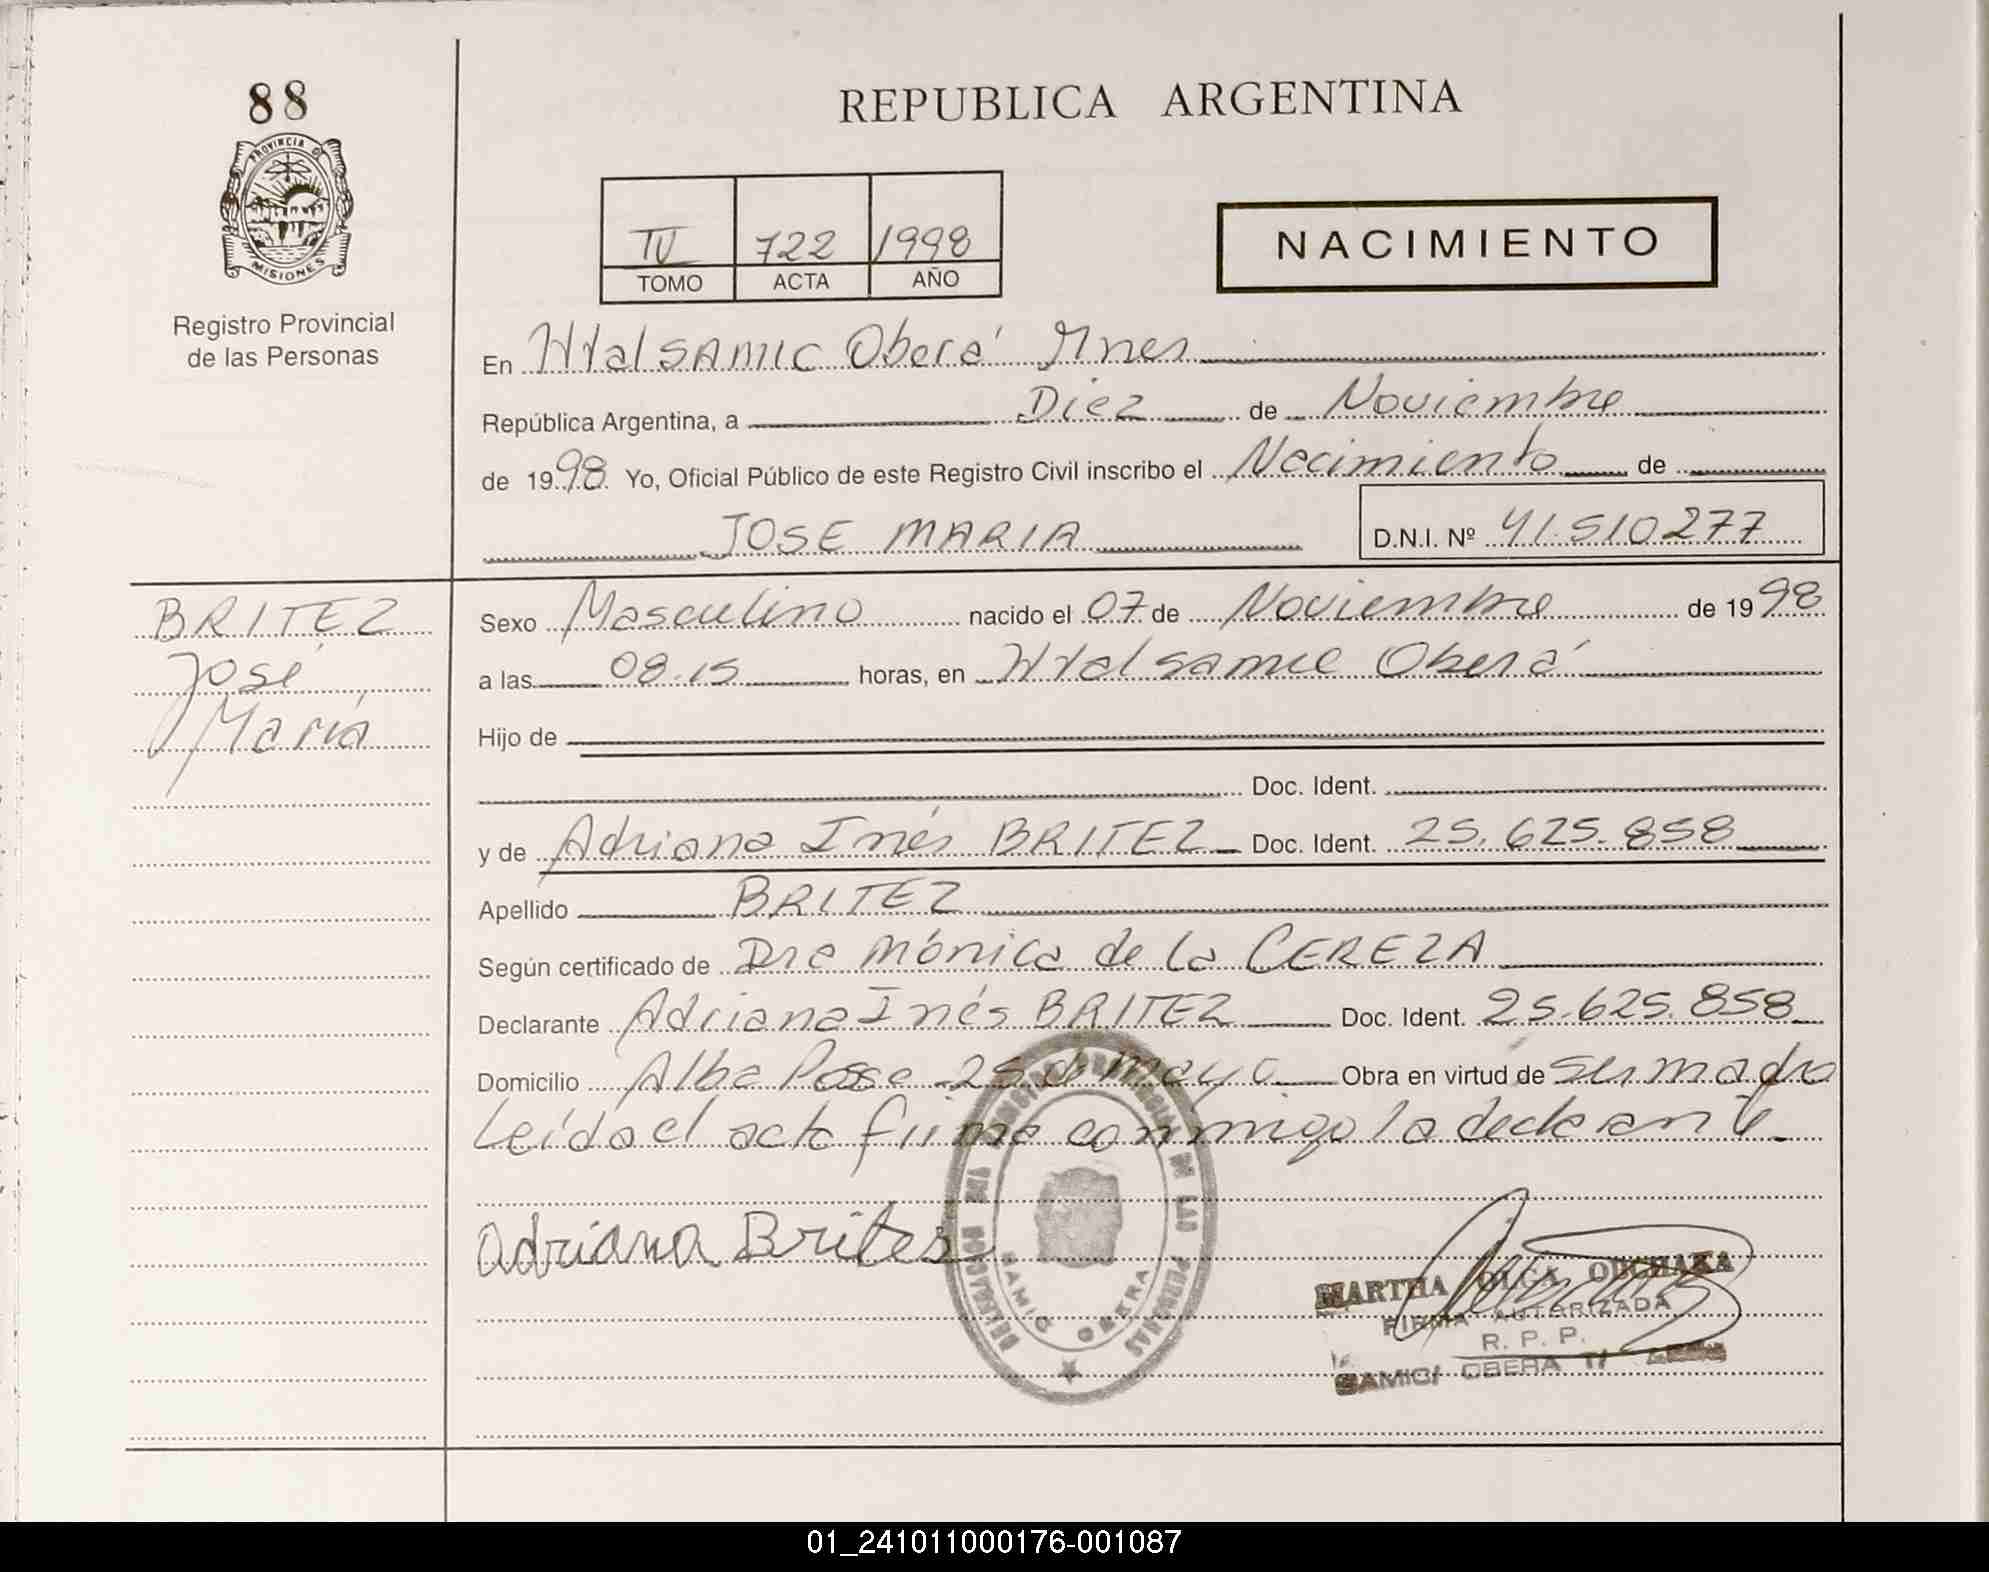 88
PROVINCIA D
MISIONES
Registro Provincial
de las Personas
REPUBLICA ARGENTINA
IV 722 1998
TOMO ACTA AÑO
NACIMIENTO
En Htal SAMIC Oberá Mnes
República Argentina, a Diez de Noviembre
de 1998 Yo, Oficial Público de este Registro Civil inscribo el Nacimiento de
JOSE MARIA D.N.I. Nº 41.510277
BRITEZ
José
María
Sexo Masculino nacido el 07 de Noviembre de 1998
a las 08.15 horas, en Htal samic Oberá
Hijo de
Doc. Ident.
y de Adriana Inés BRITEZ Doc. Ident. 25.625.858
Apellido BRITEZ
Según certificado de Dra Mónica de la CEREZA
Declarante Adriana Inés BRITEZ Doc. Ident. 25.625.858
Domicilio Alba Posse 25 d mayo Obra en virtud de su madre
Leída el acta firma conmigo la declarante
Adriana Brites
DE LAS PERSONAS
SAMIC OBERA
MARTHA OLGA
FIRMA AUTORIZADA
R. P. P.
SAMIC OBERA
01_241011000176-001087